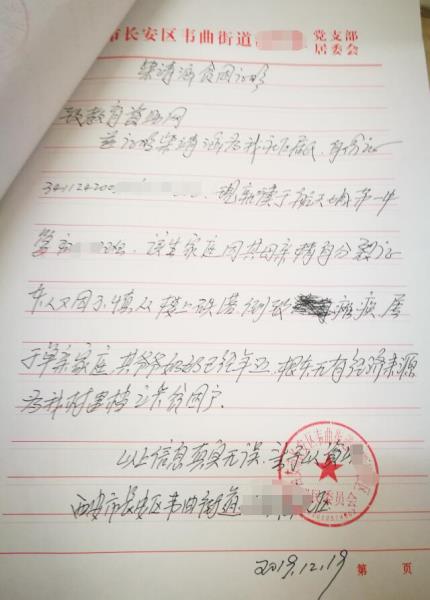 市长安区韦曲街道 党支部
居委会
贫困证明
致教育资助网
兹证明 涵为我社区居民,身份证
341124200 现就读于航天城第一中
学 该生家庭因其母亲精神分裂症
东人又因不慎从楼上跌落,倒致 瘫痪,属
于单亲家庭,其爷爷奶奶已经年迈,根本无有经济来源
为我村建档立卡贫困户.
以上信息真实无误,
西安市长安区韦曲街道
2019.12.19 第 页